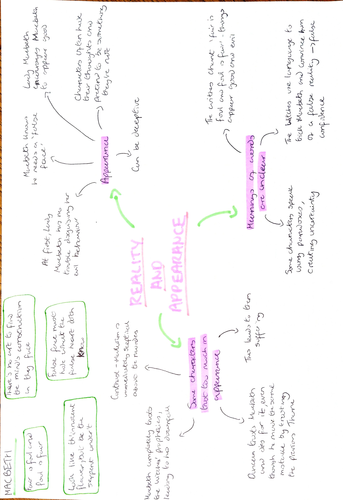 MACBETH
"fair is foul and foul
is fair"
"look like th'innocent
flower but be the
serpent under't
"There's no art to find
the mind's construction
in the face"
"False face must
hide what the
false heart doth
know"
REALITY
AND
APPEARANCE
Appearance
At first, Lady
Macbeth has no
trouble disguising her
evil behaviour
Macbeth knows
he needs a 'false
face'
Lady Macbeth
encourages Macbeth
to appear good
Characters often hide
their thoughts and
pretend to be something
they're not
Can be deceptive
Meanings of words
are unclear
The witches chant 'fair is
foul and foul is fair' - things
appear good and evil
The Witches use language to
trick Macbeth and convince him
of a false reality → false
confidence
Some characters speak
using paradoxes,
creating uncertainty
Some characters
trust too much in
appearance
Contrast - Malcolm is
immediately sceptical
about the murder
Macbeth completely trusts
the witches' prophecies,
leading to his downfall
Duncan trusts Macbeth
and dies for it even
though he makes the same
mistake by trusting
the previous Thane
This leads to them
suffering